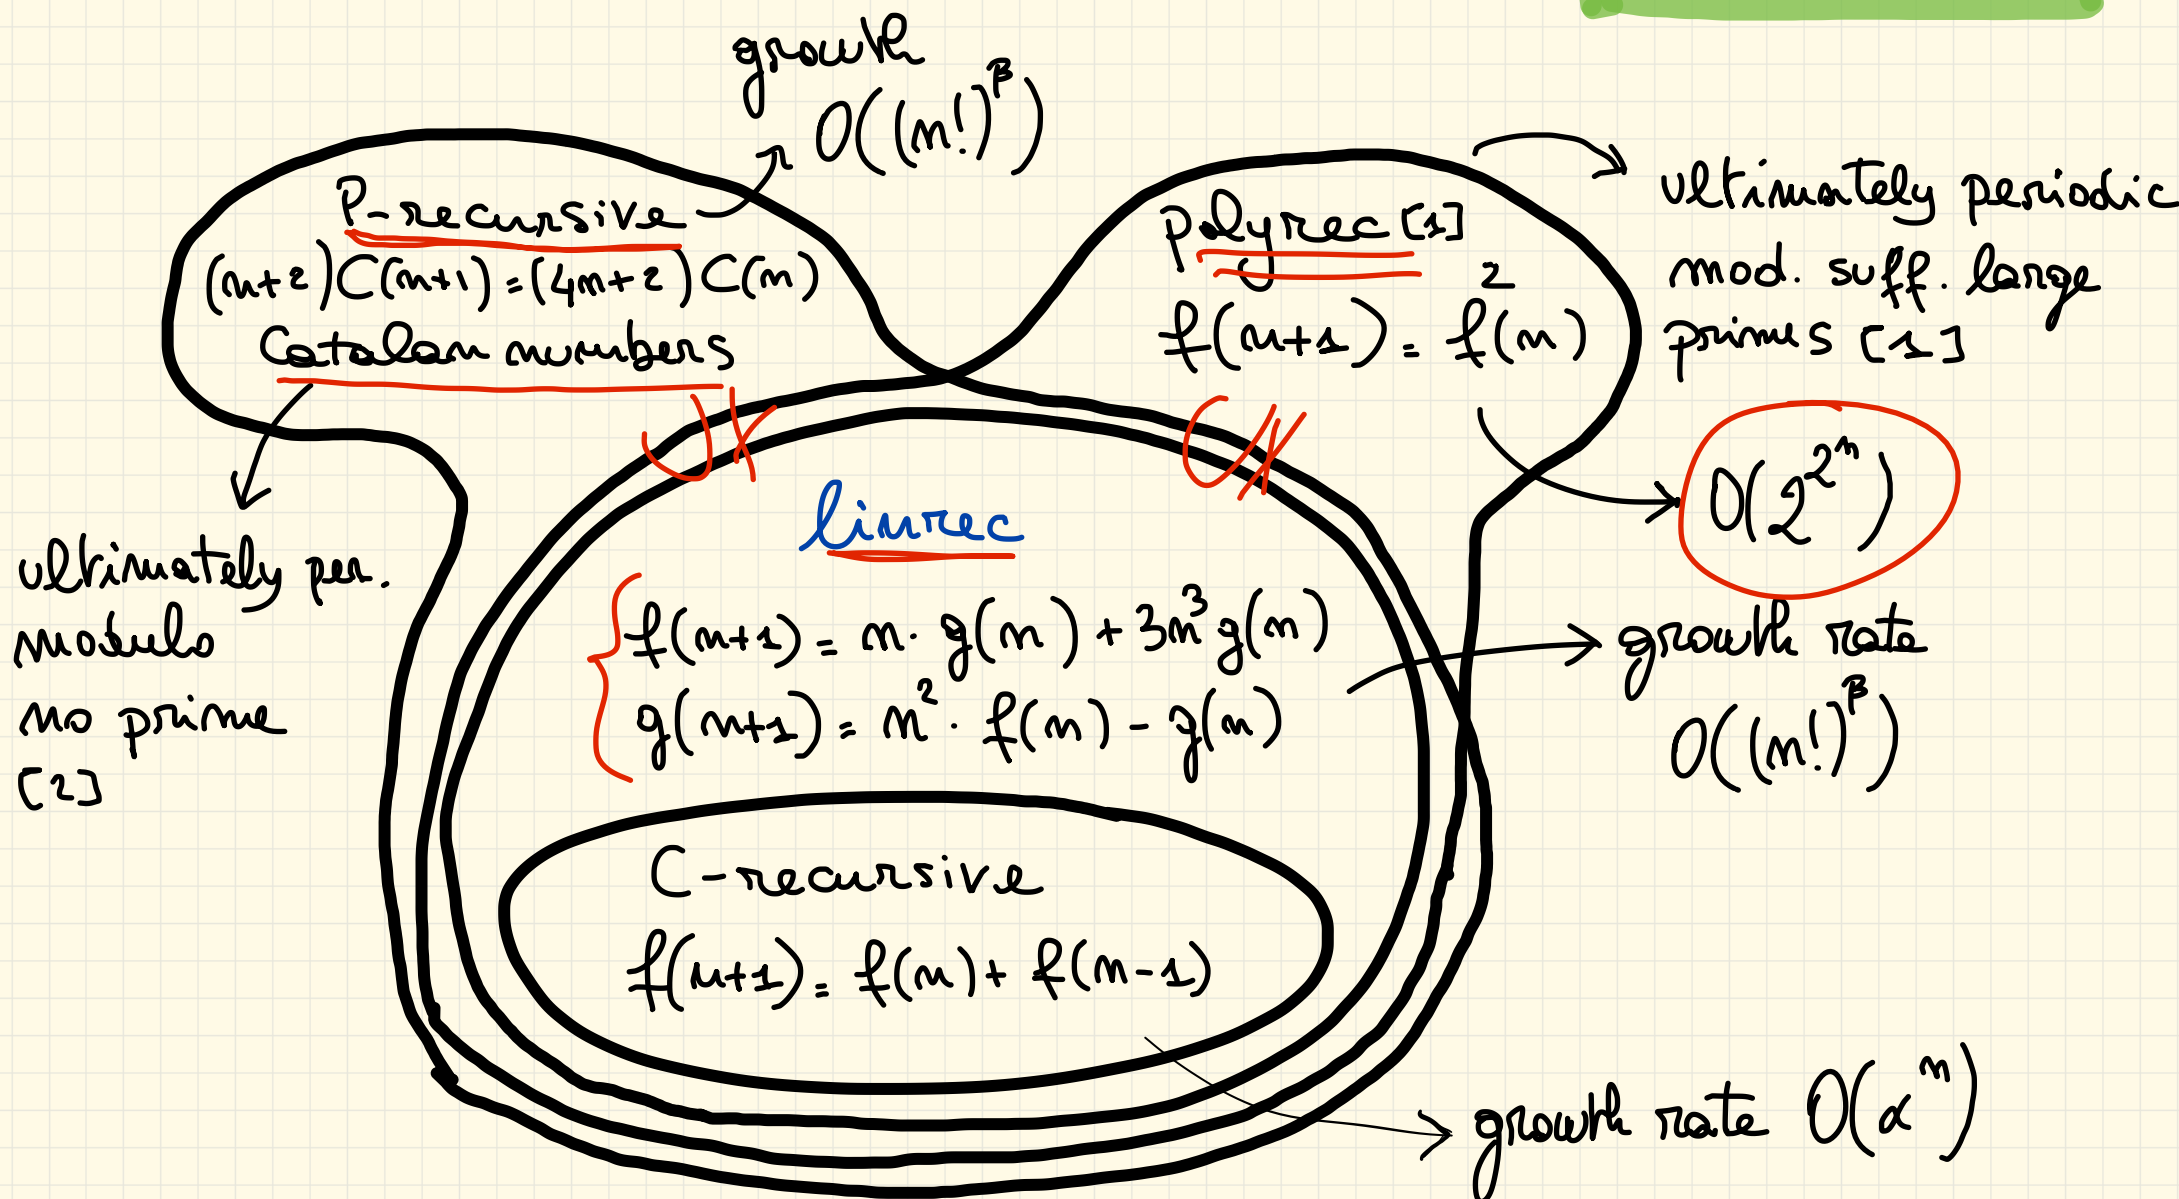 growth
O((n!)^β)
P-recursive
(n+2)C(n+1) = (4n+2)C(n)
Catalan numbers
polyrec [1]
f(n+1) = f²(n)
ultimately periodic
mod. suff. large
primes [1]
O(2^2^n)
ultimately per.
modulo
no prime
[2]
linrec
f(n+1) = n· g(n) + 3n³ g(n)
g(n+1) = n² · f(n) - g(n)
growth rate
O((n!)^β)
C-recursive
f(n+1) = f(n) + f(n-1)
growth rate O(α^n)